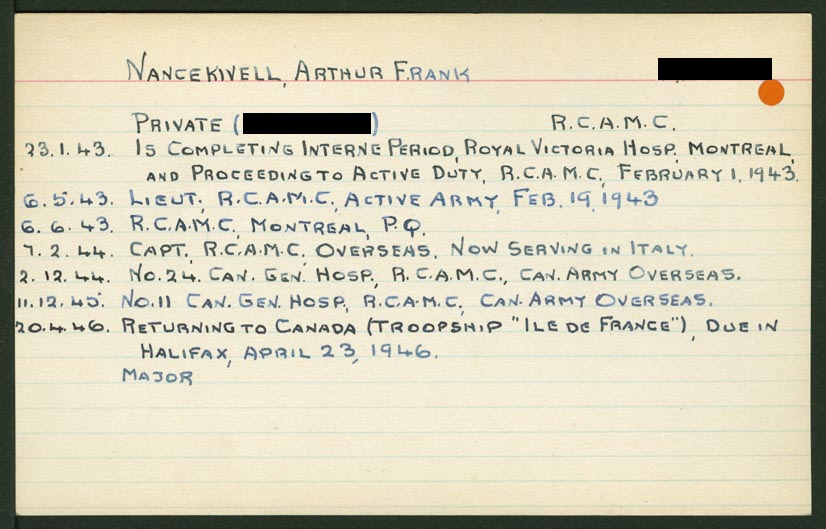 NANCEKIVELL, ARTHUR FRANK
PRIVATE ( ) R.C.A.M.C.
23.1.43. IS COMPLETING INTERNE PERIOD, ROYAL VICTORIA HOSP. MONTREAL,
AND PROCEEDING TO ACTIVE DUTY, R.C.A.M.C, FEBRUARY 1, 1943.
6.5.43. LIEUT., R.C.A.M.C, ACTIVE ARMY, FEB. 19, 1943
6.6.43. R.C.A.M.C, MONTREAL, P.Q.
7.2.44. CAPT., R.C.A.M.C, OVERSEAS. NOW SERVING IN ITALY.
2.12.44. NO.24. CAN. GEN. HOSP., R.C.A.M.C., CAN. ARMY OVERSEAS.
11.12.45. NO.11 CAN. GEN. HOSP., R.C.A.M.C, CAN. ARMY OVERSEAS.
20.4.46. RETURNING TO CANADA (TROOPSHIP "ILE DE FRANCE"), DUE IN
HALIFAX, APRIL 23, 1946.
MAJOR